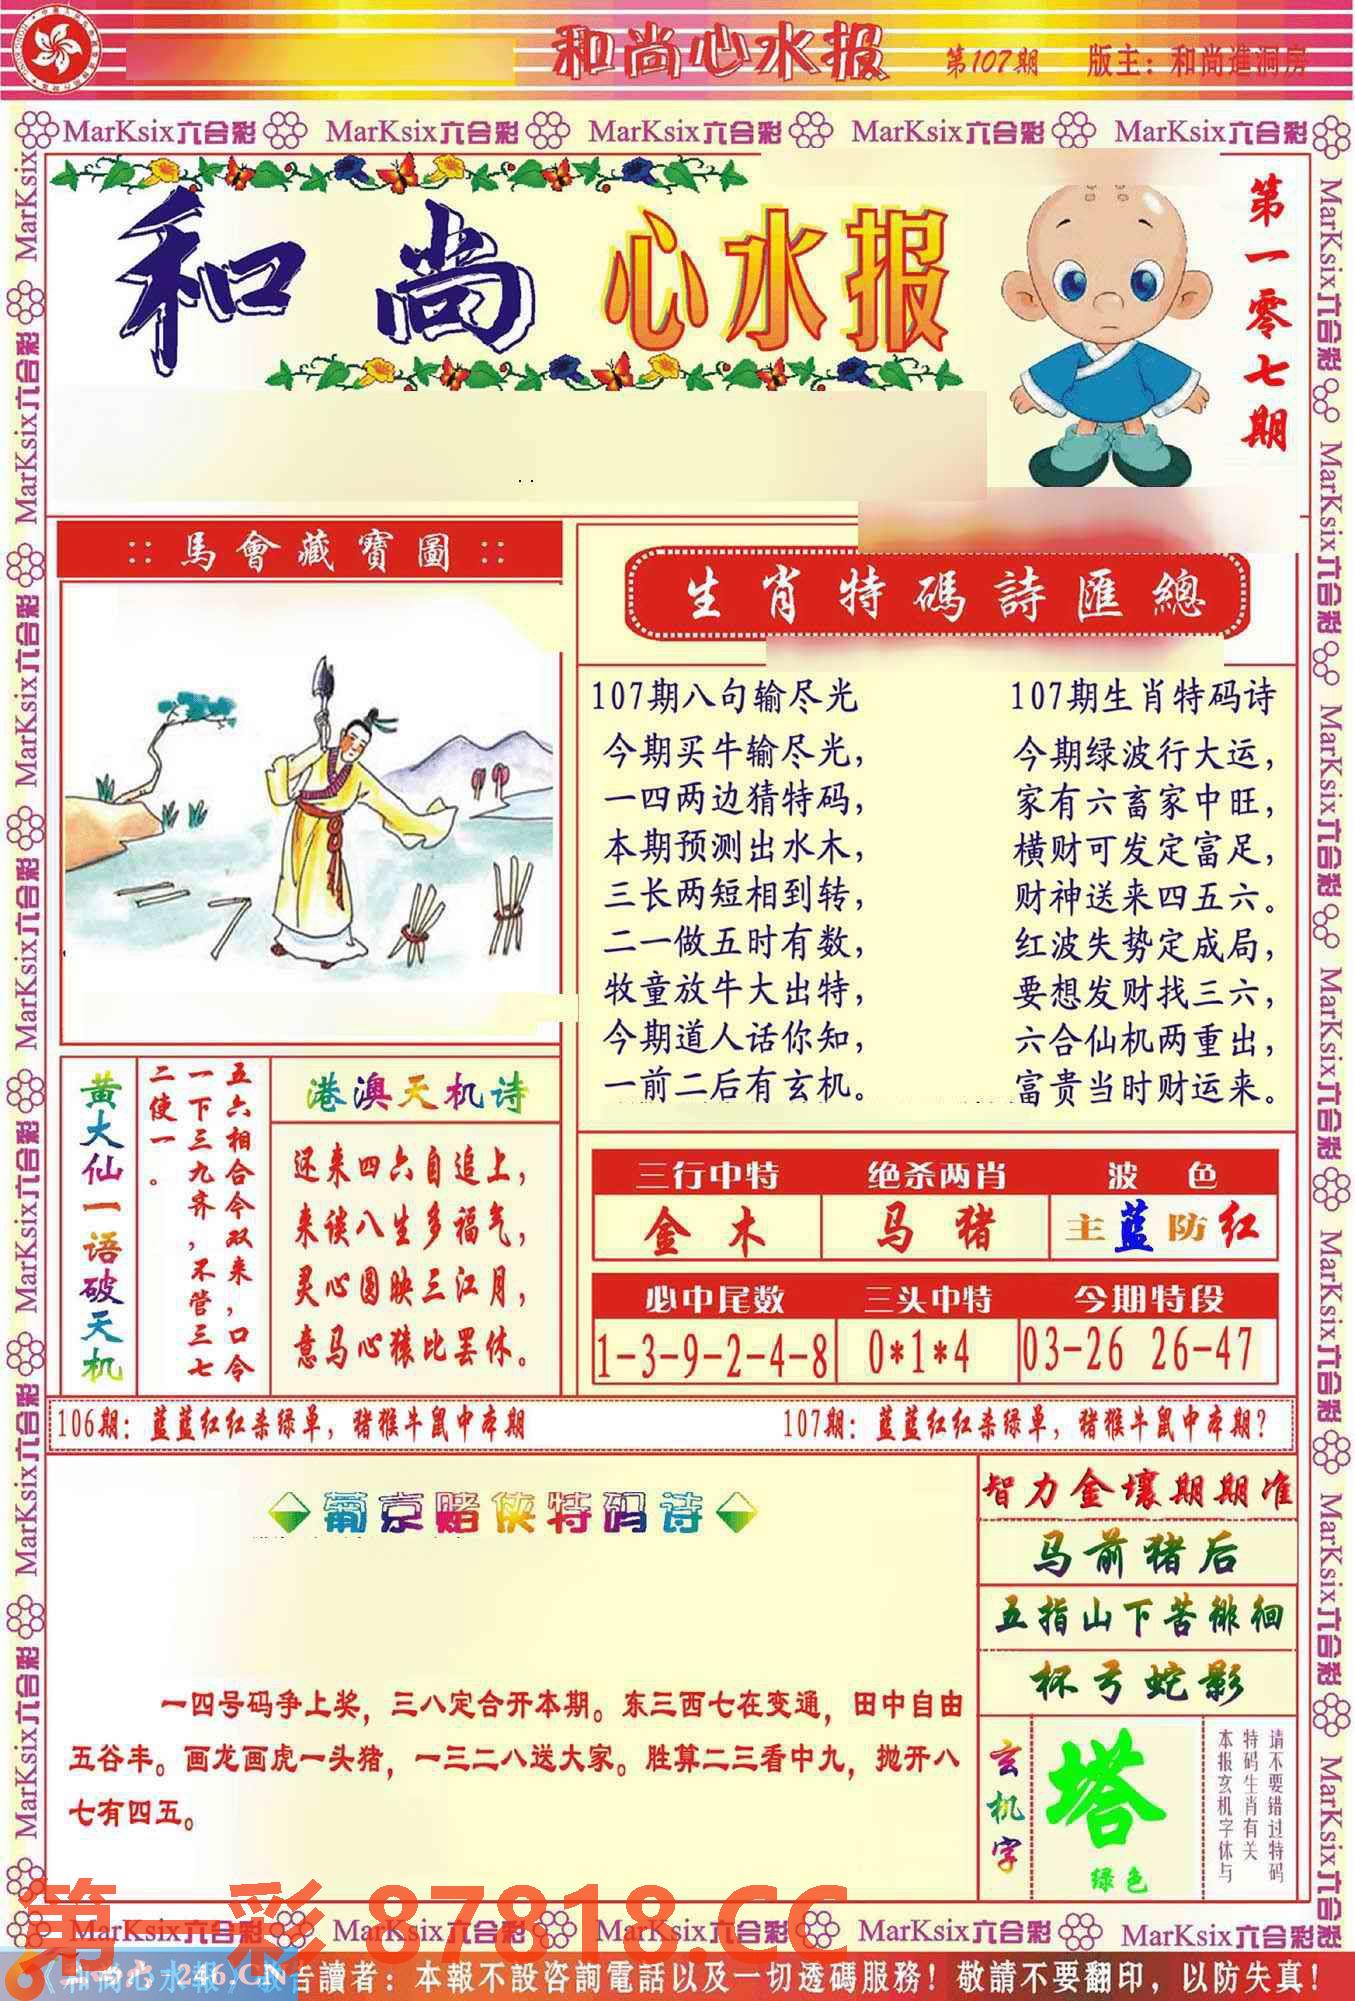 和尚心水报 第107期 版主：和尚進洞房
MarKsix六合彩 MarKsix六合彩 MarKsix六合彩 MarKsix六合彩 MarKsix六合彩
和尚心水报
第一零七期
馬會藏寶圖
生肖特碼詩匯總
107期八句输尽光
今期买牛输尽光，
一四两边猜特码，
本期预测出水木，
三长两短相到转，
二一做五时有数，
牧童放牛大出特，
今期道人话你知，
一前二后有玄机。
107期生肖特码诗
今期绿波行大运，
家有六畜家中旺，
横财可发定富足，
财神送来四五六。
红波失势定成局，
要想发财找三六，
六合仙机两重出，
富贵当时财运来。
黄大仙一语破天机
五六相合今双来，口令
一下三九齐，不管三七
二使一。
港澳天机诗
还来四六自追上，
来谈八生多福气，
灵心圆映三江月，
意马心猿比罢休。
三行中特 绝杀两肖 波色
金木 马猪 主蓝防红
必中尾数 三头中特 今期特段
1-3-9-2-4-8 0*1*4 03-26 26-47
106期：蓝蓝红红杀绿单，猪猴牛鼠中本期 107期：蓝蓝红红杀绿单，猪猴牛鼠中本期？
葡京赌侠特码诗
一四号码争上奖，三八定合开本期。东三西七在变通，田中自由
五谷丰。画龙画虎一头猪，一三二八送大家。胜算二三看中九，抛开八
七有四五。
智力金壤期期准
马前猪后
五指山下苦徘徊
杯弓蛇影
玄机字
塔
绿色
请不要错过特码
特码生肖有关
本报玄机字体与
第一彩 87818.CC
MarKsix六合彩 MarKsix六合彩 MarKsix六合彩 MarKsix六合彩 MarKsix六合彩
246.CN
告讀者：本報不設咨詢電話以及一切透碼服務！敬請不要翻印，以防失真！